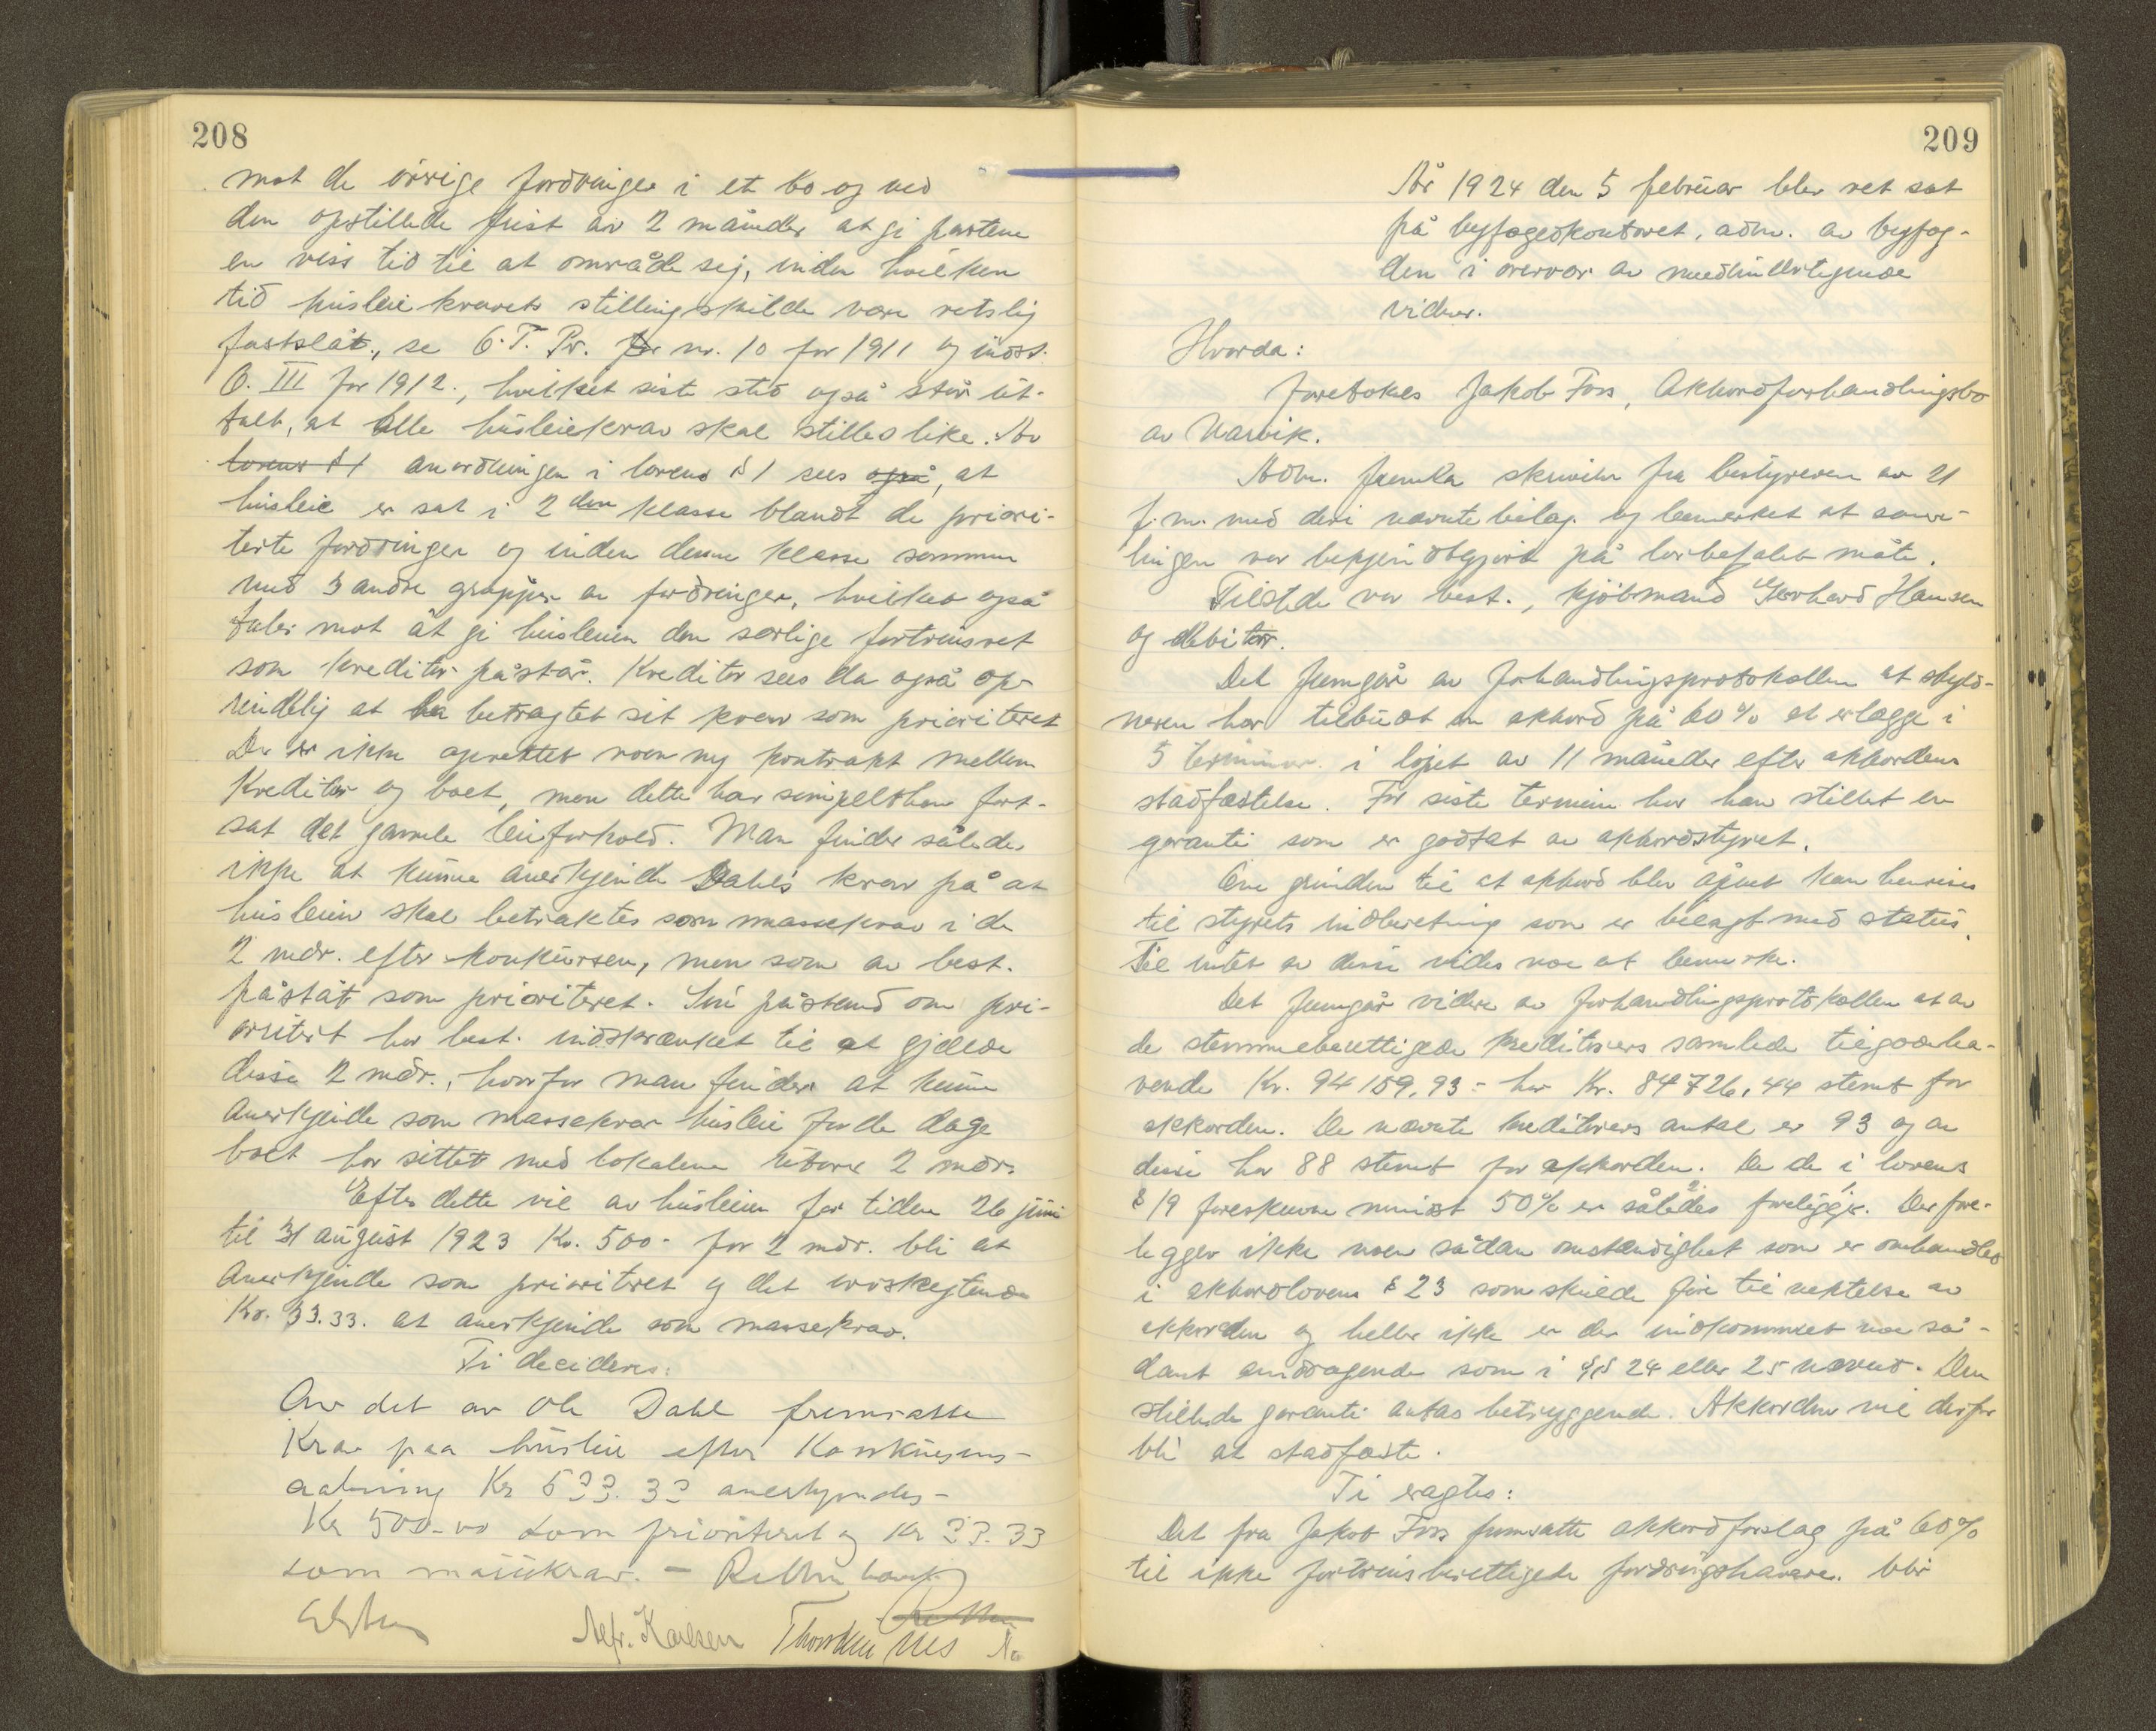 208
mot de övrige fordringer i et bo og ved
den opstillede frist av 2 måneder at gi partene
en viss tid til at område sig, inden hvilken
tid husleiekravets stilling skulde være retslig
fastslåt, se O.T. Pr. nr. 10 for 1911 og indst.
O. III for 1912., hvilket siste sted også står ut-
talt, at alle husleiekrav skal stilles like. Av
lovens § 1 anordningen i lovens § 1 sees også, at
husleie er sat i 2den klasse blandt de priori-
terte fordringer og inden denne klasse sammen
med 3 andre grupper av fordringer, hvilket også
taler mot åt gi husleien den særlige fortrinsret
som kreditor påstår. Kreditor sees da også op-
rindelig at ha betragtet sit krav som prioriteret
Der er ikke oprettet noen ny kontrakt mellem
Kreditor og boet, men dette har simpelthen fort-
sat det gamle leieforhold. Man finder således
ikke at kunne anerkjende Dahls krav på at
husleien skal betraktes som massekrav i de
2 mdr. efter konkursen, men som av best.
påståt som prioriteret. Sin påstand om pri-
oritet har best. indskrænket til at gjælde
disse 2 mdr., hvorfor man finder at kunne
anerkjende som massekrav husleie for de dage
boet har sittet med lokalene utover 2 mdr.
Efter dette vil av husleien for tiden 26 juni
til 31 august 1923 Kr. 500.- for 2 mdr. bli at
anerkjende som prioriteret og det overskytende
Kr. 33.33. at anerkjende som massekrav.
Ti decideres:
Av det av Ole Dahl fremsatte
Krav paa husleie efter Konkursens-
aabning Kr 533.33 anerkjendes-
Kr 500.00 som prioriteret og Kr 33.33
som massekrav. -
Alfr. Karlsen Thorstein Nes
209
År 1924 den 5 februar blev ret sat
på byfogedkontoret, adm. av byfog-
den i overvær av medundertegnede
vidner.
Hvorda:
Foretokes Jakob Foss, Akkordforhandlingsbo
av Narvik.
Adm. fremla skrivelse fra bestyreren av 21
f.m. med deri nævnte bilag. og bemerket at sam-
lingen var bekjendtgjort på lovbefalet måte.
Tilstede var best., kjöbmand Gerhard Hansen
og debitor.
Det fremgår av forhandlingsprotokollen at skyld-
neren har tilbudt en akkord på 60% at erlægge i
5 terminer i löpet av 11 måneder efter akkordens
stadfæstelse. For siste termin har han stillet en
garanti som er godtat av akkordstyret.
Om grunden til at akkord blev åpnet kan henvises
til styrets indberetning som er bilagt med status.
Til intet av disse vides noe at bemerke.
Det fremgår videre av forhandlingsprotokollen at av
de stemmeberettigede kreditorers samlede tilgodeha-
vende Kr. 94 159,93.- har Kr. 84726,44 stemt for
akkorden. De nævnte kreditorers antal er 93 og av
disse har 88 stemt for akkorden. De de i lovens
§ 19 foreskrevne mindst 50% er således foreligger. Der fore-
ligger ikke noen sådan omstændighet som er omhandlet
i akkordlovens § 23 som skulde före til nektelse av
akkorden og heller ikke er der indkommet noe så-
dant andragende som i §§ 24 eller 25 nævnt. Den
stillede garanti antas betryggende. Akkorden vil derfor
bli at stadfæste.
Ti eragtes:
Det fra Jakob Foss fremsatte akkordforslag på 60%
til ikke fortrinsberettigede fordringshavere. blir